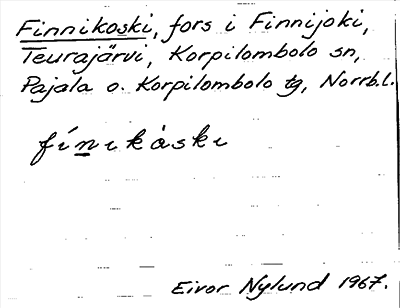 Finnikoski, fors i Finnijoki,
Teurajärvi, Korpilombolo sn,
Pajala o. Korpilombolo tg, Norrb.l.
fínikåski
Eivor Nylund 1967.